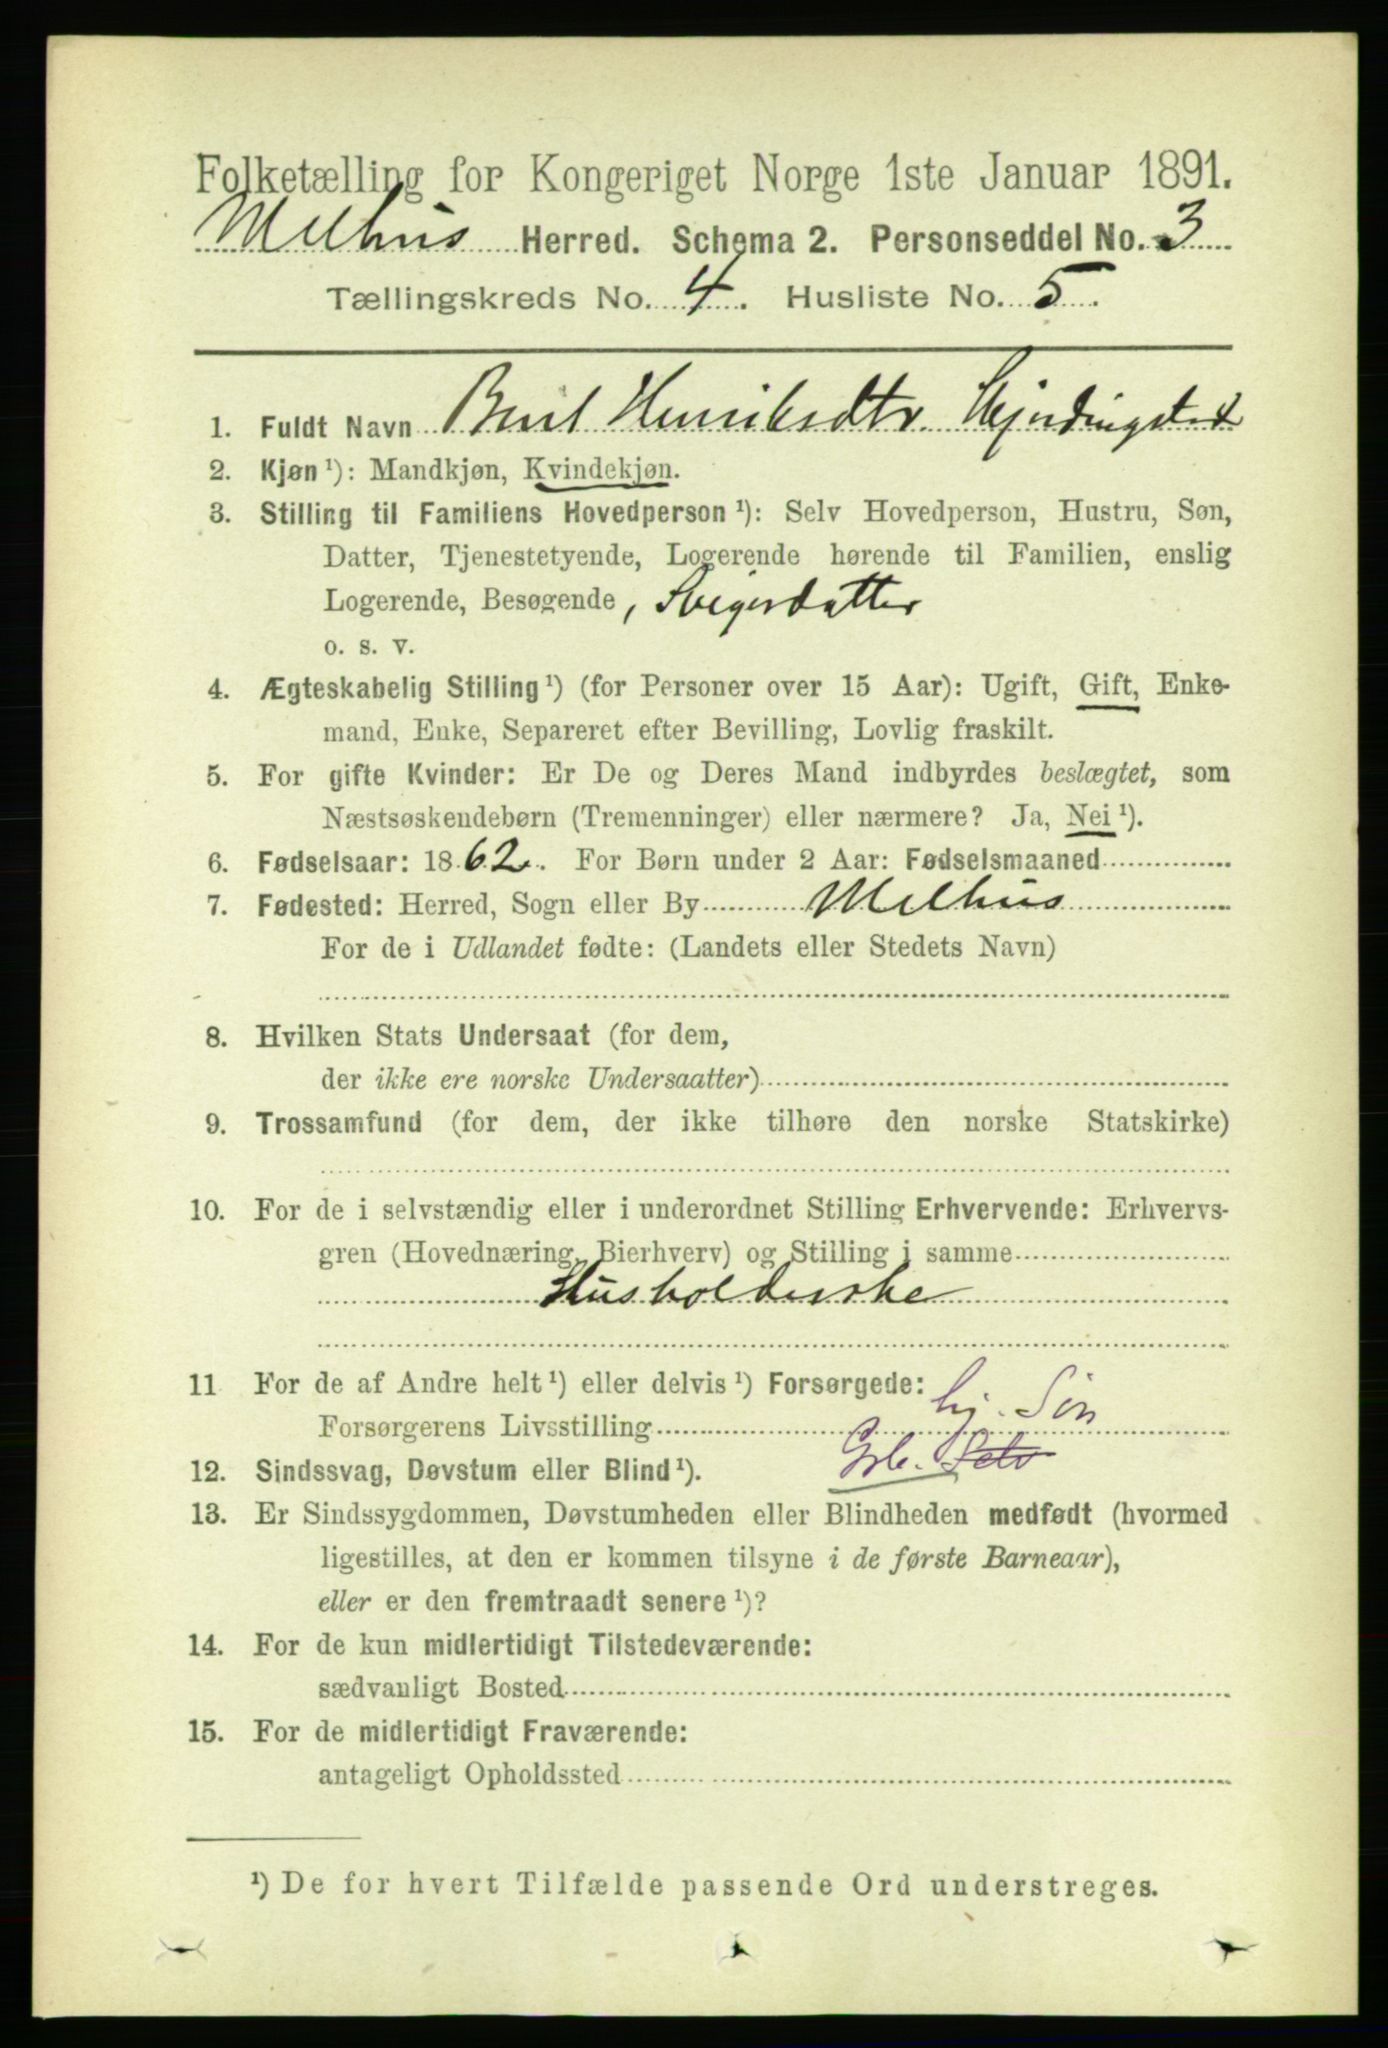 Folketælling for Kongeriget Norge 1ste Januar 1891.
Melhus Herred. Schema 2. Personseddel No. 3
Tællingskreds No. 4. Husliste No. 5.
1. Fuldt Navn Henriksdtr.
2. Kjøn ¹): Mandkjøn, Kvindekjøn.
3. Stilling til Familiens Hovedperson ¹): Selv Hovedperson, Hustru, Søn,
Datter, Tjenestetyende, Logerende hørende til Familien, enslig
Logerende, Besøgende, Svigerdatter
o. s. v.
4. Ægteskabelig Stilling ¹) (for Personer over 15 Aar): Ugift, Gift, Enke-
mand, Enke, Separeret efter Bevilling, Lovlig fraskilt.
5. For gifte Kvinder: Er De og Deres Mand indbyrdes beslægtet, som
Næstsøskendebørn (Tremenninger) eller nærmere? Ja, Nei ¹).
6. Fødselsaar: 1862. For Børn under 2 Aar: Fødselsmaaned
7. Fødested: Herred, Sogn eller By Melhus
For de i Udlandet fødte: (Landets eller Stedets Navn)
8. Hvilken Stats Undersaat (for dem,
der ikke ere norske Undersaatter)
9. Trossamfund (for dem, der ikke tilhøre den norske Statskirke)
10. For de i selvstændig eller i underordnet Stilling Erhvervende: Erhvervs-
gren (Hovednæring, Bierhverv) og Stilling i samme
Husholderske
11 For de af Andre helt ¹) eller delvis ¹) Forsørgede:
hj. Søn
Forsørgerens Livsstilling
Grb. Selv
12. Sindssvag, Døvstum eller Blind ¹).
13. Er Sindssygdommen, Døvstumheden eller Blindheden medfødt (hvormed
ligestilles, at den er kommen tilsyne i de første Barneaar),
eller er den fremtraadt senere ¹)?
14. For de kun midlertidigt Tilstedeværende:
sædvanligt Bosted
15. For de midlertidigt Fraværende:
antageligt Opholdssted
¹) De for hvert Tilfælde passende Ord understreges.